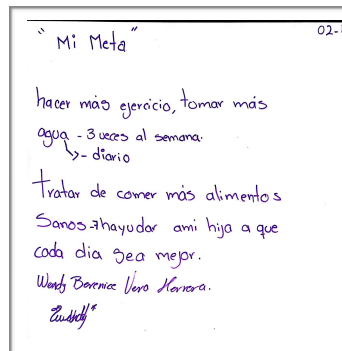 02-
"Mi Meta"
hacer más ejercicio, tomar más
agua - 3 veces al semana.
↳ - diario
Tratar de comer más alimentos
Sanos → hayudar ami hija a que
cada dia sea mejor.
Wendy Berenice Vera Herrera.